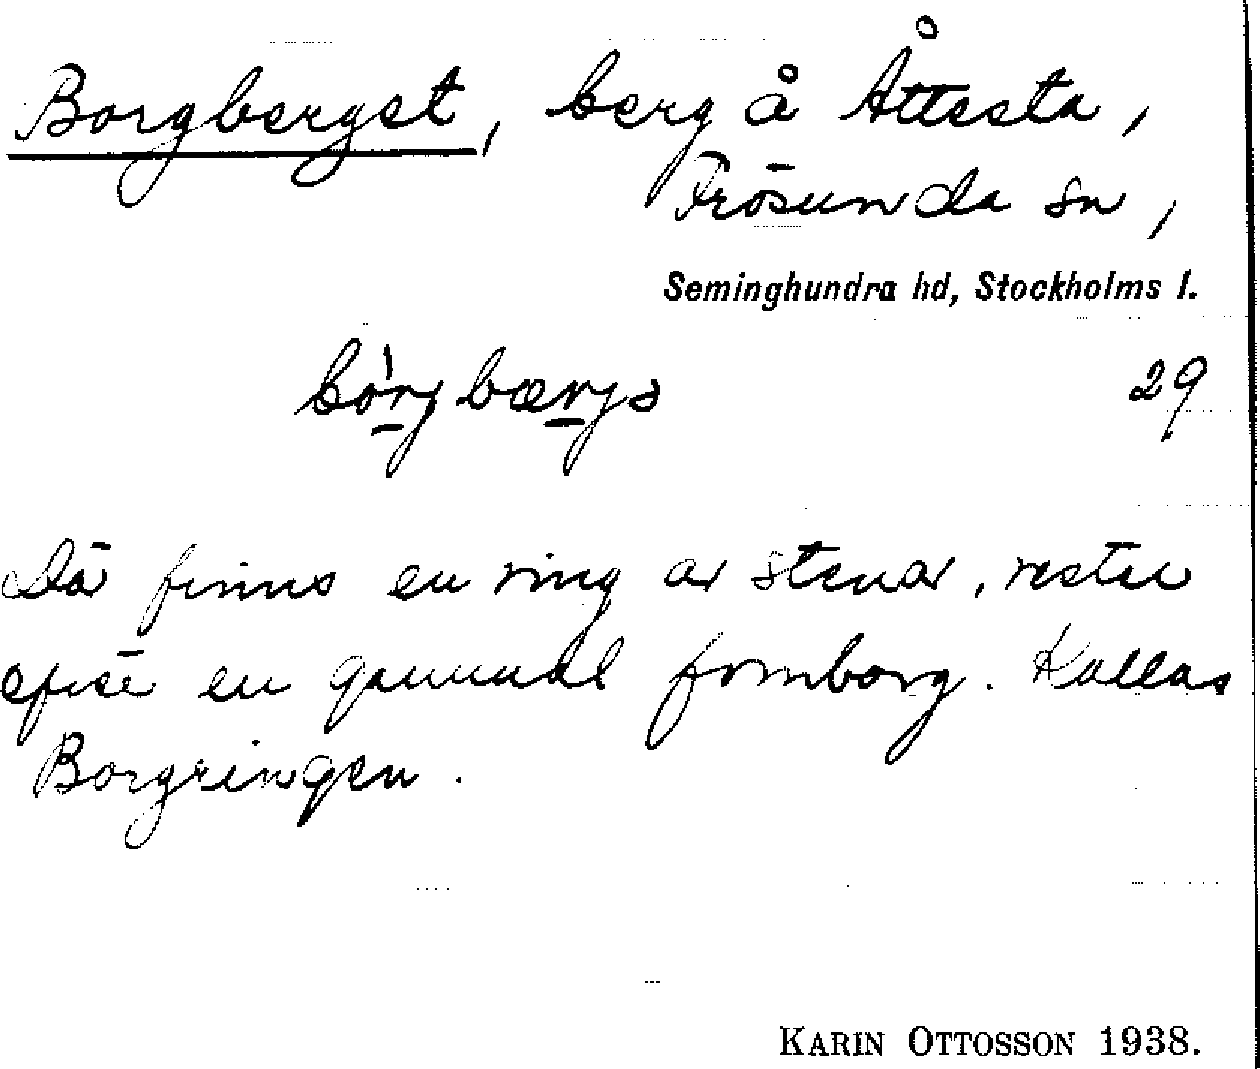 Borgberget, berg å Åttesta,
Frösunda sn,
Seminghundra hd, Stockholms l.
29
Då finns en ring av stenar, rester
en gammal fornborg. Kallas
Borgringen.
KARIN OTTOSSON 1938.